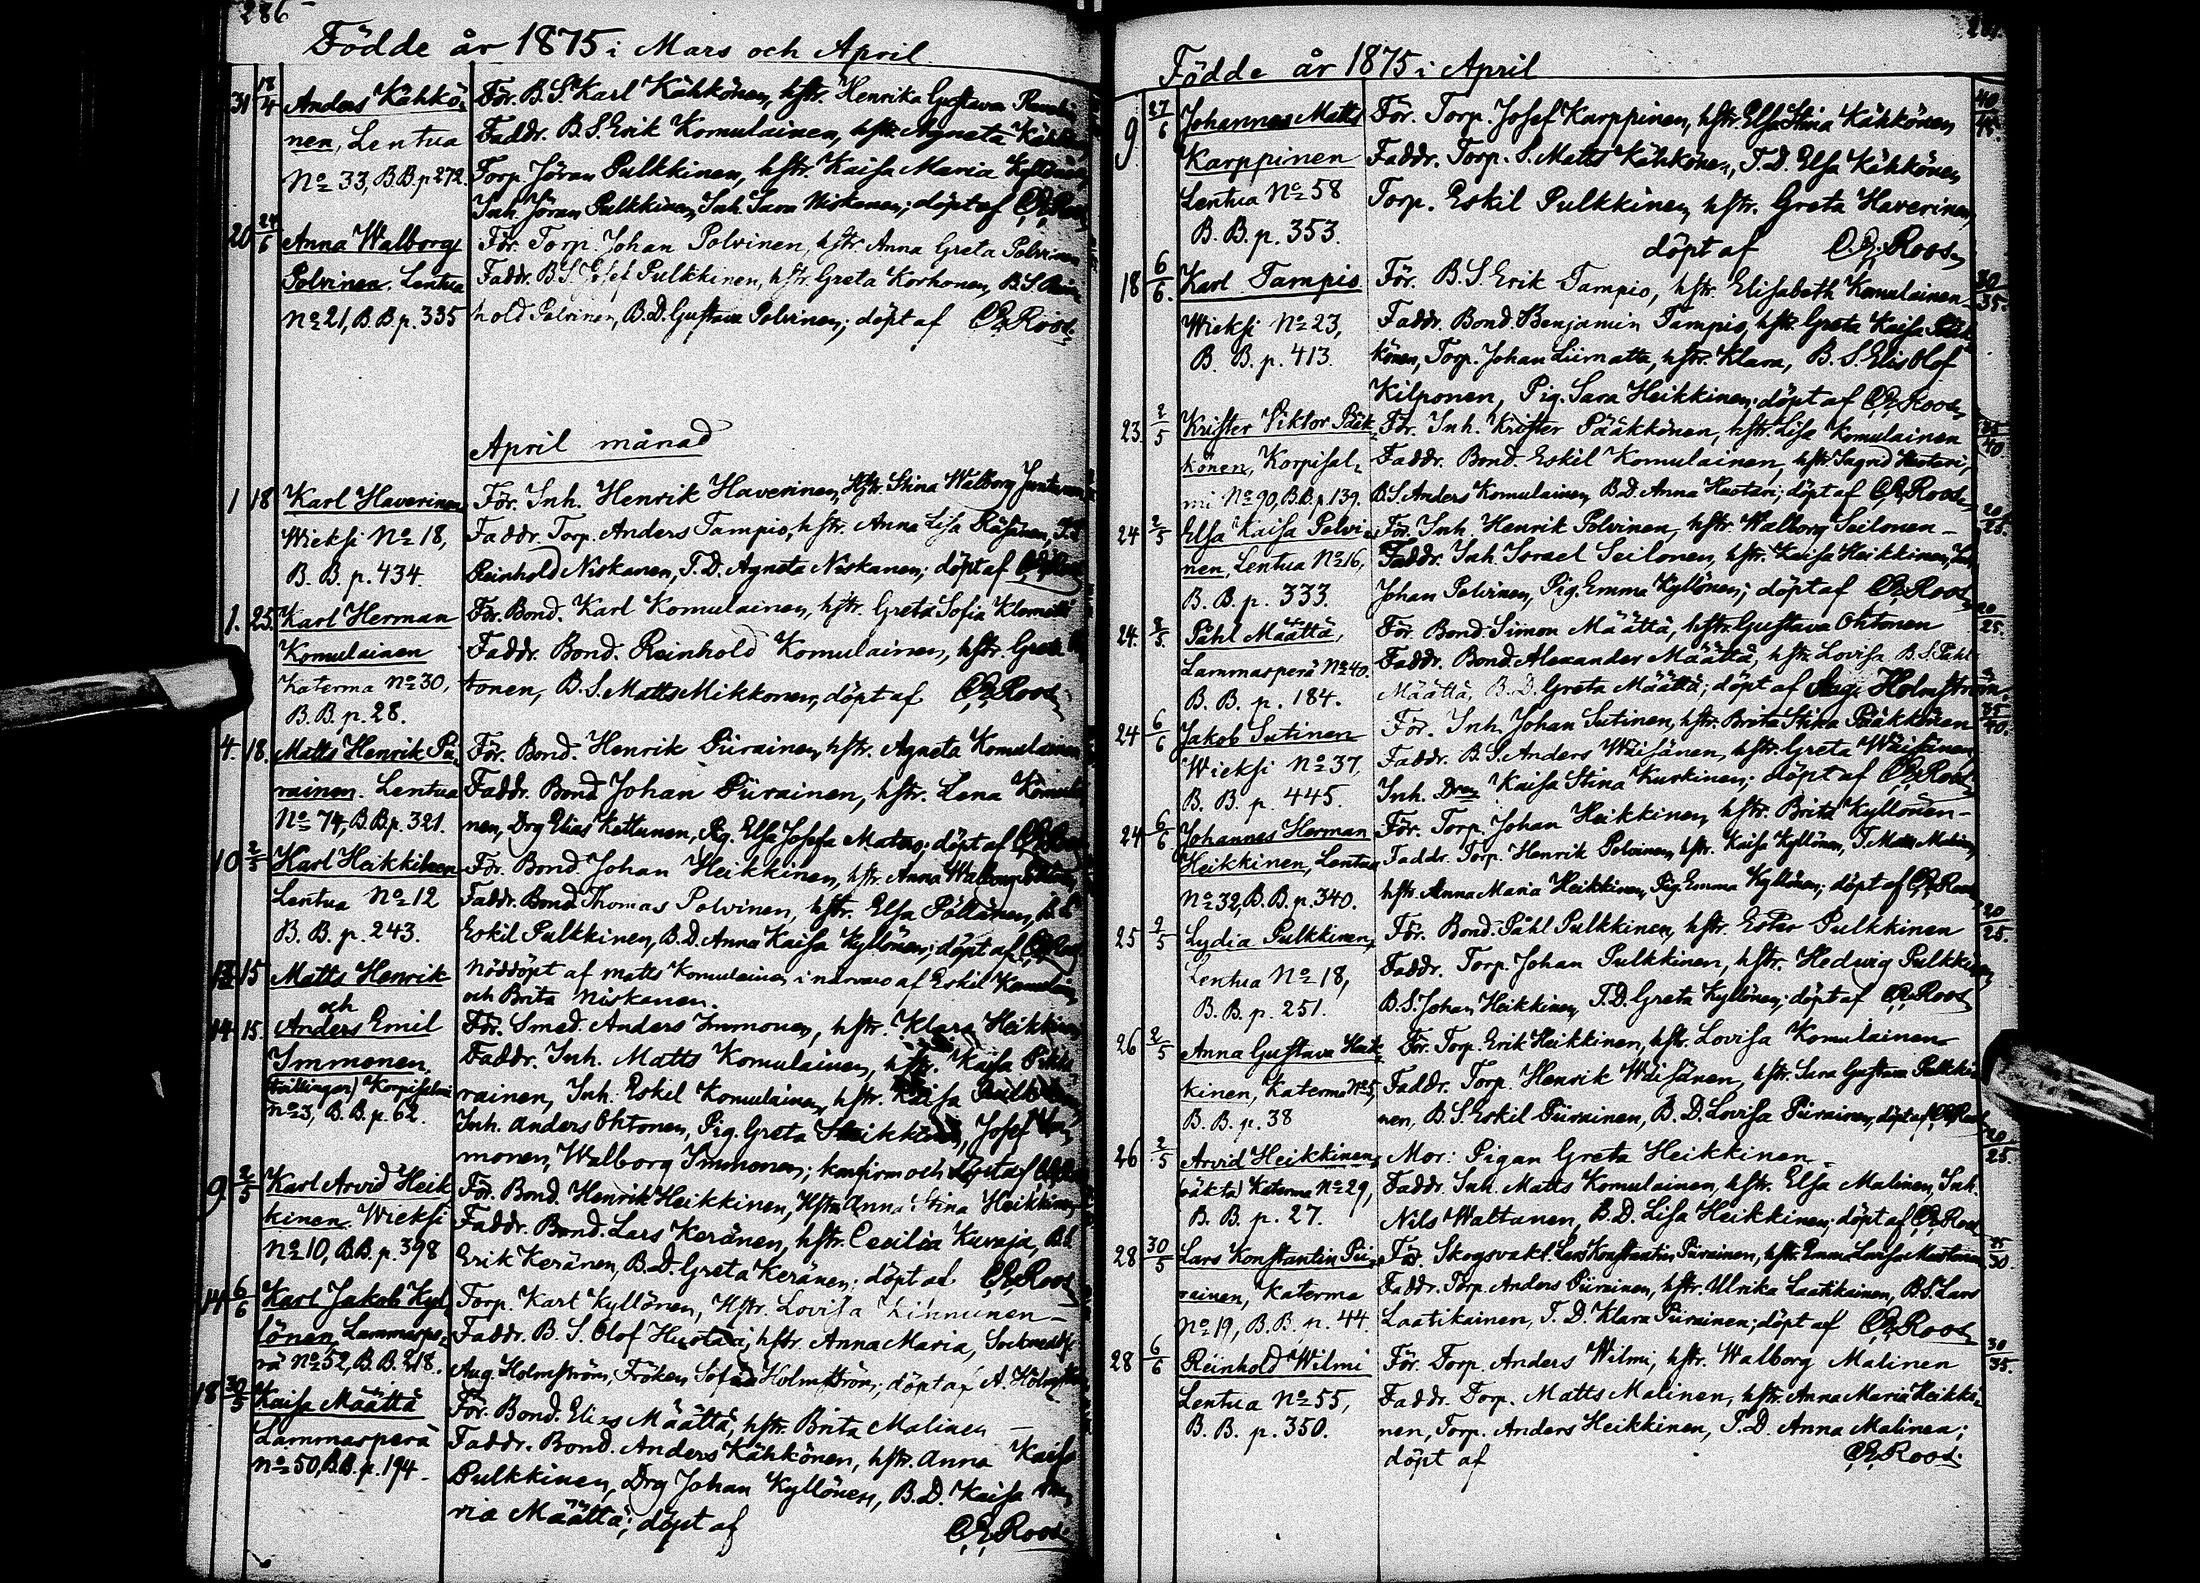 286
Födde år 1875 i Mars och April
31 18/4 Anders Kähkö- För. B.S. Karl Kähkönen, hstr. Henrika Gustava
nen, Lentua Faddr. B.S. Erik Komulainen, hstr. Agneta
No 33, B.B.p 272. Torp. Jöran Pulkkinen, hstr. Kaisa Maria
Inh. Jöran Pulkkinen, Inh. Sara Niskanen; döpt af
20 24/6 Anna Walborg För. Torp. Johan Polvinen, hstr. Anna Greta Polvinen
Polvinen, Lentua Faddr. B.S. Josef Pulkkinen, hstr. Greta Korhonen, B.S. Rein
No 21, B.B.p. 335 hold Polvinen, B.D. Gustava Polvinen; döpt af C.E. Roos.
April månad
1 18 Karl Haverinen För. Inh. Henrik Haverinen, Hstr. Stina Walborg
Wieksi No 18, Faddr. Torp. Anders Tampio, hstr. Anna Lisa Räsänen,
B.B. p. 434 Reinhold Niskanen, T.D. Agneta Niskanen; döpt af
1. 25 Karl Herman För. Bond. Karl Komulainen, hstr. Greta Sofia
Komulainen Faddr. Bond. Reinhold Komulainen, hstr. Greta
Katerma No 30, tonen, B.S. Matts Mikkonen, döpt af C.E. Roos.
B.B. p. 28.
4. 18. Matts Henrik Pii- För. Bond. Henrik Piirainen, hstr. Agneta Komulainen
rainen. Lentua Faddr. Bond Johan Piirainen, hstr. Lena
No 74, B.B.p. 321. nen, Drg Elias Kettunen, Pig. Elsa Josefa döpt af
10 2/5 Karl Heikkinen För. Bond. Johan Heikkinen, hstr. Anna Walborg
Lentua No 12 Faddr. Bond Thomas Polvinen, hstr. Elsa Pöllänen,
B.B. p. 243. Eskil Pulkkinen, B.D. Anna Kaisa Kyllönen; döpt af
15 Matts Henrik Nöddöpt af Matts Komulainen i närvaro af Eskil
och och Brita Niskanen.
14 15. Anders Emil För. Smed. Anders Immonen, hstr. Klara Heikkinen
Immonen. Faddr. Inh. Matts Komulainen, hstr. Kaisa
(tvillingar) Korpisalmi rainen, Inh. Eskil Komulainen, hstr. Kaisa
No 3, B.B. p. 62. Inh. Anders Ohtonen, Pig. Greta Heikkinen, Josef
monen, Walborg Immonen; konfirm och döpt af
9. 2/5 Karl Arvid Heik För. Bond. Henrik Heikkinen, Hstr. Anna Stina Heikkinen
kinen. Wieksi Faddr. Bond. Lars Keränen, hstr. Cecilia Kuvaja,
No 10, B.B. p. 398 Erik Keränen, B.D. Greta Keränen; döpt af C.E. Roos
14 6/6 Karl Jakob Kyl- Torp. Karl Kyllönen, Hstr. Lovisa Kinnunen
lönen, Lammaspe- Faddr. B.S. Olof Huotari, hstr. Anna Maria,
rä No 52, B.B. 218. Aug. Holmström, Fröken Sofia Holmström; döpt af A.
18 30/5 Kaisa Määttä För. Bond. Elias Määttä, hstr. Brita Malinen
Lammasperä Faddr. Bond. Anders Kähkönen, hstr. Anna Kaisa
No 50, B.B. p. 194. Pulkkinen, Drg Johan Kyllönen, B.D. Kaisa
ria Määttä; döpt af C.E. Roos.
Födde år 1875 i April
9 27/6 Johannes Matts För. Torp. Josef Karppinen, hstr. Elsa Stina Kähkönen 40/45.
Karppinen Faddr. Torp. S. Matts Kähkönen, T.D. Elsa Kähkönen
Lentua No 58 Torp. Eskil Pulkkinen, hstr. Greta Haverinen,
B.B. p. 353. döpt af C.E. Roos.
18 6/6. Karl Tampio För. B.S. Erik Tampio, hstr. Elisabeth Komulainen 30/35.
Wieksi No 23, Faddr. Bond. Benjamin Tampio, hstr. Greta Kaisa
B.B. p. 413. könen, Torp. Johan Liimatta, hstr. Klara, B.S. Elis Olof
Kilponen, Pig. Sara Heikkinen; döpt af C.E. Roos
23 2/5 Krister Viktor Pääk- För. Inh. Krister Pääkkönen, hstr. Lisa Komulainen 35/40.
könen, Korpisal- Faddr. Bond. Eskil Komulainen, hstr. Ingrid Huotari,
mi No 90, B.B.p. 139. B.S. Anders Komulainen, B.D. Anna Huotari; döpt af C.E. Roos
24 2/5 Elsa Kaisa Polvi- För. Inh. Henrik Polvinen, hstr. Walborg Seilonen 20/25.
nen, Lentua No 16, Faddr. Inh. Israel Seilonen, hstr. Kaisa Heikkinen,
B.B. p. 333. Johan Polvinen, Pig. Emma Kyllönen; döpt af C.E. Roos
24. Påhl Määttä, För. Bond. Simon Määttä, hstr. Gustava Ohtonen 20/25.
Lammasperä No 40. Faddr. Bond. Alexander Määttä, hstr. Lovisa B.S. Påhl
B.B. p. 184. Määttä, B.D. Greta Määttä; döpt af Aug. Holmström.
24 6/6 Jakob Sutinen För. Inh. Johan Sutinen, hstr. Brita Stina Pääkkönen 35/40.
Wieksi No 37, Faddr. B.S. Anders Wäisänen, hstr. Greta Wäisänen
B.B. p. 445. Inh. Kaisa Stina Kurkinen; döpt af C.E. Roos
24 6/6 Johannes Herman För. Torp. Johan Heikkinen, hstr. Brita Kyllönen
Heikkinen, Lentua Faddr. Torp. Henrik Polvinen, hstr. Kaisa Kyllönen, T. Matts Malinen,
No 32, B.B. p. 340. hstr. Anna Maria Heikkinen, Pig. Emma Kyllönen; döpt af C.E. Roos
25 2/5 Lydia Pulkkinen, För. Bond. Påhl Pulkkinen, hstr. Ester Pulkkinen 20/25.
Lentua No 18, Faddr. Torp. Johan Pulkkinen, hstr. Hedvig Pulkkinen
B.B. p. 251. B.S. Johan Heikkinen, T.D. Greta Kyllönen; döpt af C.E. Roos
26 2/5 Anna Gustava Heik- För. Torp. Erik Heikkinen, hstr. Lovisa Komulainen
kinen, Katerma No 5, Faddr. Torp. Henrik Wäisänen, hstr. Sara Gustava Pulkki
B.B. p. 38 nen, B.S. Eskil Piirainen, B.D. Lovisa Piirainen, döpt af C.E. Roos
26 2/5 Arvid Heikkinen, Mor: Pigan Greta Heikkinen 20/25.
(oäkta) Katerma No 29, Faddr. Inh. Matts Komulainen, hstr. Elsa Malinen, Inh.
B.B. p. 27. Nils Waltanen, B.D. Lisa Heikkinen; döpt af C.E. Roos
28 30/5 Lars Konstantin Pii- För. Skogsvakt. Lars Konstantin Piirainen, hstr. Emma Lovisa 25/30
rainen, Katerma Faddr. Torp. Anders Piirainen, hstr. Ulrika Laatikainen, B.S. Lars
No 19, B.B. p. 44. Laatikainen, T.D. Klara Piirainen; döpt af C.E. Roos
28 6/6 Reinhold Wilmi För. Torp. Anders Wilmi, hstr. Walborg Malinen 30/35.
Lentua No 55, Faddr. Torp. Matts Malinen, hstr. Anna Maria Heikki-
B.B. p. 350. nen, Torp. Anders Heikkinen, T.D. Anna Malinen;
döpt af C.E. Roos.